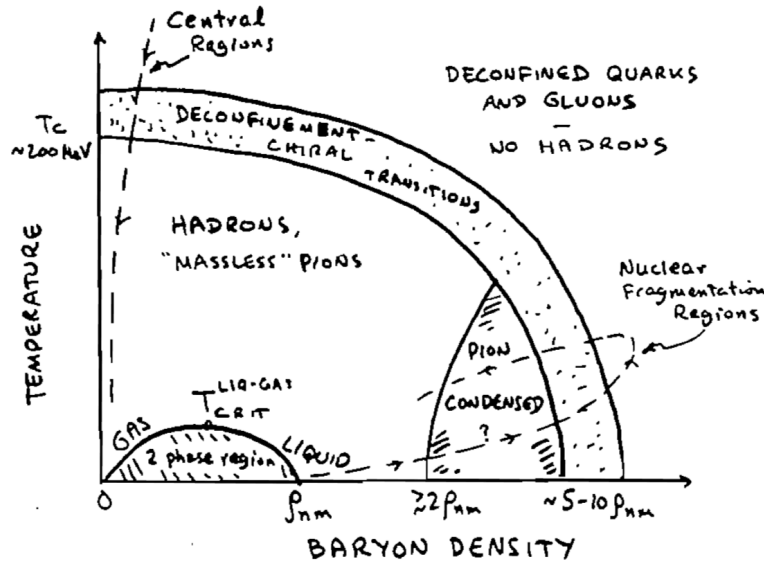 Central
Regions
DECONFINED QUARKS
AND GLUONS
—
NO HADRONS
Tc
~200 MeV
DECONFINEMENT-
CHIRAL
TRANSITIONS
HADRONS,
"MASSLESS" PIONS
Nuclear
Fragmentation
Regions
TEMPERATURE
PION
CONDENSED
?
T LIQ-GAS
CRIT
GAS
LIQUID
2 phase region
0
ρnm
≳2ρnm
~5-10ρnm
BARYON DENSITY